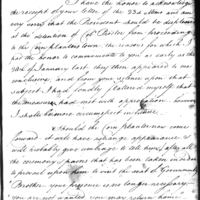 I have the honor to acknowledge
the receipt of your letter of the 23d ultmo and am
very sorry that the President should be displeased
at the detention of Col. Procter from proceeding
to the Cornplanters town; the reasons for which I
had the honor to communicate to you as early as the
of January last, they then appeared to me
conclusive, and from your silence upon that
subject I had fondly flattered myself that
the measure had met with approbation, however
I shall be more circumspect in future.
Should the Cornplanter now come
forward it will have a strange appearance and
will probably give umbrage to tell him (after all
the ceremony & pains that has been taken in order
to prevail upon him to visit the seat of Government)
Brother, your presence is no longer necessary,
you are not wanted, you may return home